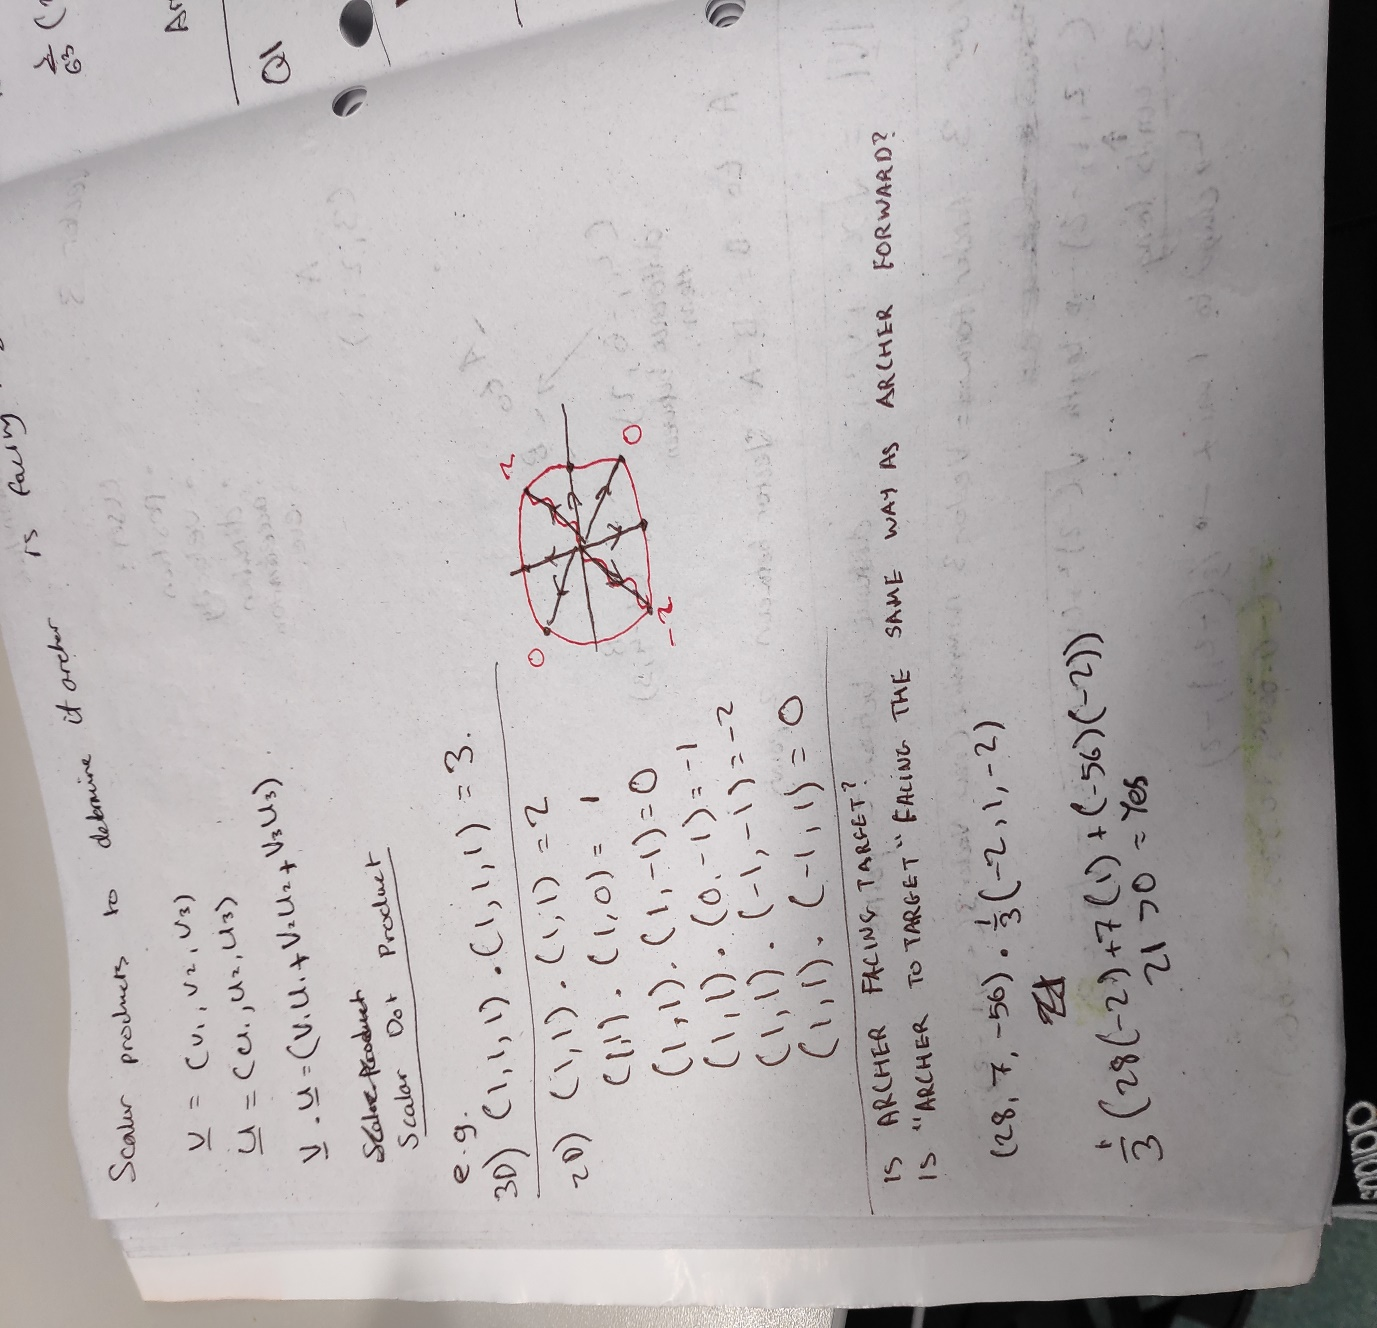 Scalar products to determine if archer is facing
v = (v1, v2, v3)
u = (u1, u2, u3)
v . u = (v1u1 + v2u2 + v3u3)
Scalar Dot Product
e.g.
3D) (1,1,1) . (1,1,1) = 3.
2D) (1,1) . (1,1) = 2
(1,1) . (1,0) = 1
(1,1) . (1,-1) = 0
(1,1) . (0,-1) = -1
(1,1) . (-1,-1) = -2
(1,1) . (-1,1) = 0
0
2
0
-2
IS ARCHER FACING TARGET?
IS "ARCHER TO TARGET" FACING THE SAME WAY AS ARCHER FORWARD?
(28, 7, -56) . 1/3 (-2, 1, -2)
1/3 (28(-2) + 7(1) + (-56)(-2))
21 > 0 = Yes
Q1
adidas